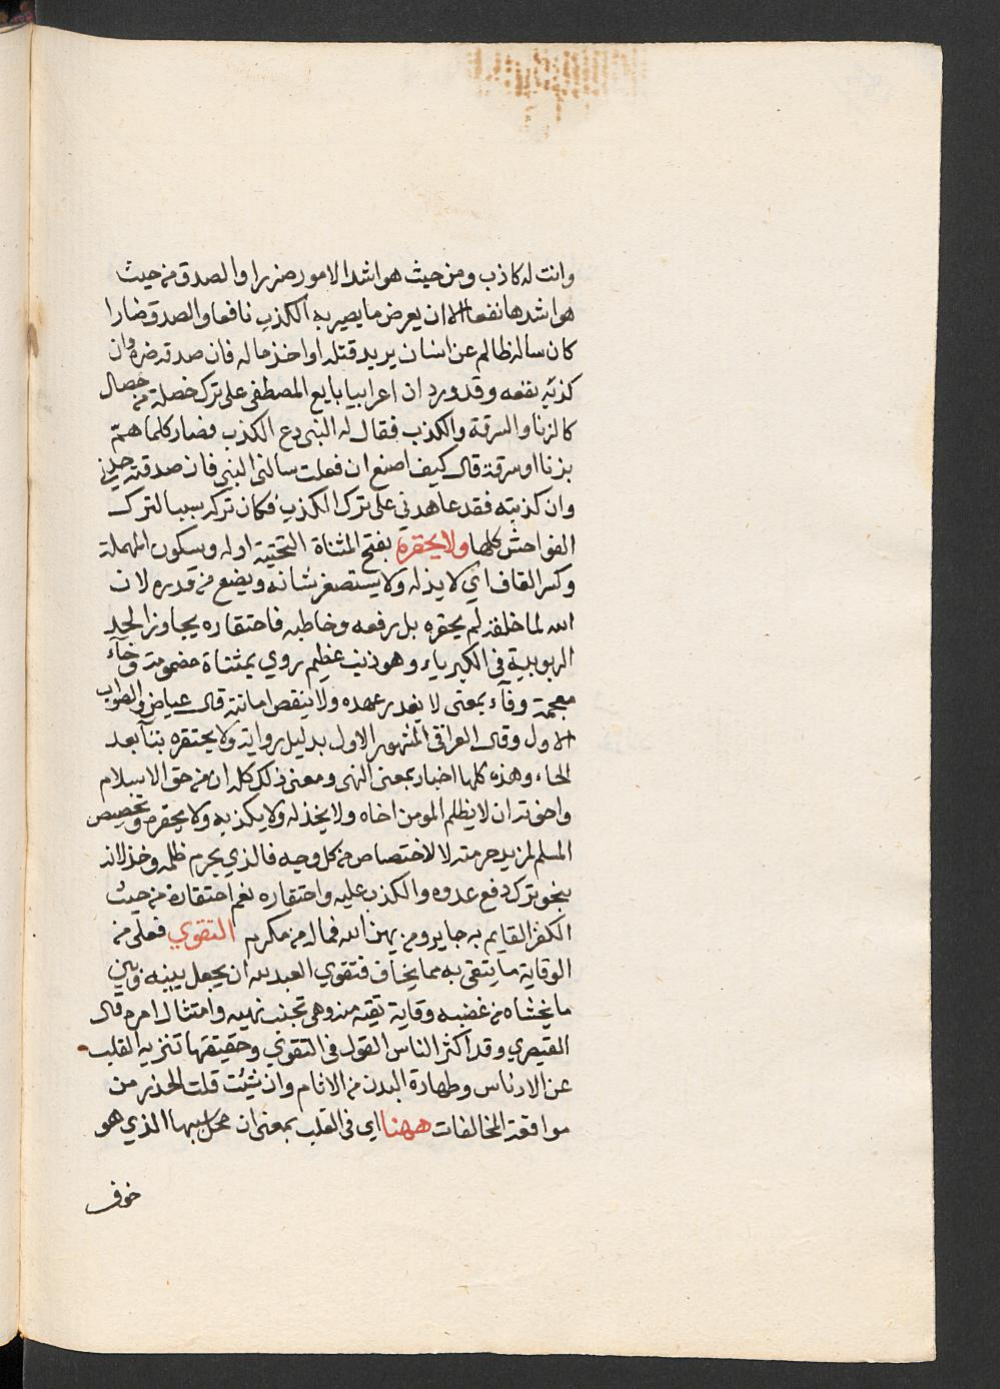 وانت له كاذب ومن حيث هو اشد الامور ضررا والصدق من حيث
هو اشدها نفعا الا ان يعرض ما يصير به الكذب نافعا والصدق ضارا
كان ساله ظالم عن انسان يريد قتله او اخذ ماله فان صدقه ضره وان
كذبه نفعه وقد ورد ان اعرابيا بايع المصطفى على ترك خصلة من خصال
كالزنا والسرقة والكذب فقال له النبي دع الكذب فصار كلما همّ
بزنا او سرقة قال كيف اصنع ان فعلت سالني النبي فان صدقته حدني
وان كذبته فقد عاهدني على ترك الكذب فكان تركه سببا لترك
الفواحش كلها ولا يحقره بفتح المثناة التحتية اوله وسكون المهملة
وكسر القاف اي لا يذله ولا يستصغر شانه ويضع من قدره لان
الله لما خلقه لم يحقره بل رفعه وخاطبه فاحتقاره يجاوز الحد
الربوبية في الكبرياء وهو ذنب عظيم روي بمثناة مضمومة وخاء
معجمة وفاء بمعنى لا يغدر عهده ولا ينقص امانته قال عياض والصواب
الاول وقال العراقي المشهور الاول بدليل رواية ولا يحتقره بتا بعد
الحاء وهذه كلها اخبار بمعنى النهي ومعنى ذلك كله ان من حق الاسلام
واخوته ان لا يظلم المومن اخاه ولا يخذله ولا يكذبه ولا يحقره وتخصيص
المسلم لمزيد حرمته لا للاختصاص من كل وجه فالذي يحرم ظلمه وخذلانه
بنحو ترك دفع عدوه والكذب عليه واحتقاره نعم احتقاره من حيث
الكفر القايم به جايز ومن يهن الله فما له من مكرم التقوي فعلى من
الوقاية ما يتقى به مما يخاف فتقوي العبد لله ان يجعل بينه وبين
ما يخشاه من غضبه وقاية تقيه منه وهي تجنب نهيه وامتثال امره قال
القيصري وقد اكثر الناس القول في التقوي وحقيقتها تنزيه القلب
عن الادناس وطهارة البدن من الاثام وان شئت قلت الحذر من
مواقعة المخالفات ههنا اي في القلب بمعنى ان محل سببها الذي هو
خوف